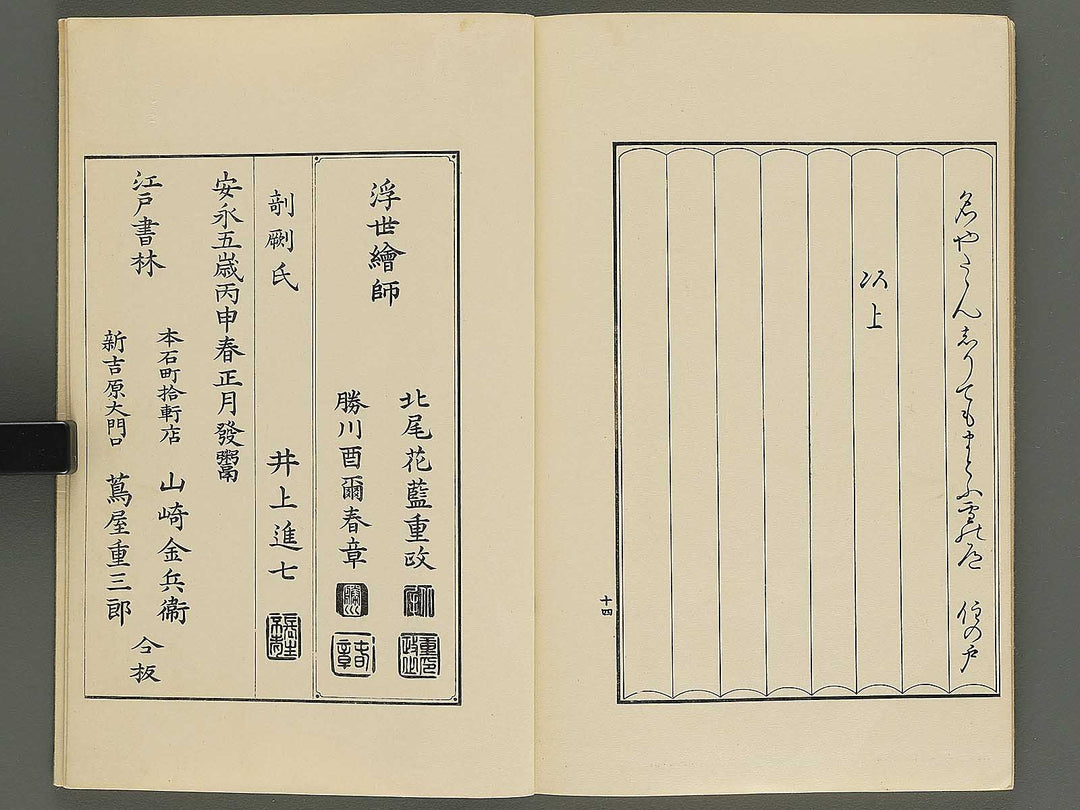 名やたらん しりてもまよふ雪の道 住の戸
以上
十四
浮世繪師
北尾花藍重政
勝川酉爾春章
剞劂氏
井上進七
安永五歳丙申春正月發鬻
江戸書林
本石町拾軒店 山崎金兵衞
新吉原大門口 蔦屋重三郎
合板